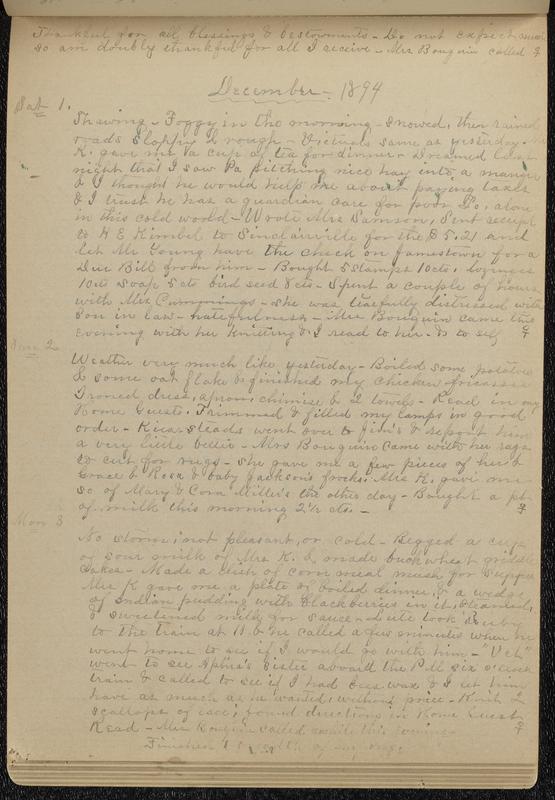 Thankful for all blessings & bestowments - Do not expect much
so am doubly thankful for all I receive - Mrs Bouquin called
December - 1894
Sat 1.
Thawing - Foggy in the morning - snowed, then rained
roads sloppy & rough - Victuals same as yesterday - Mrs
K. gave me a cup of tea for dinner - Dreamed last
night that I saw Pa pitching nice hay into a manger
& I thought he would help me about paying taxes
& I trust he has a guardian care for poor alone
in this cold world - Wrote Mrs Samson, Sent receipt
to H E Kimbel to Sinclairville for the $5.21 and
let Mr Young have the check on Jamestown for a
Due Bill from him - Bought 5 stamps 10cts. lozenges
10cts Soap 5cts bird seed 8cts - Spent a couple of hours
with Mrs Cummings - she was tearfully distressed with
son in law - hatefulness - Mrs Bouquin came this
evening with her knitting & I read to her & to self
Sun 2
Weather very much like yesterday - Boiled some potatoes
& some oat flake & finished my chicken fricassee
Ironed dress, apron, chimise & 2 towels - Read in my
Home Guest. Trimmed & filled my lamps in good
order - Steads went over to Jim's & report him
a very little better - Mrs Bouquin came with her rags
to cut for rugs - she gave me a few pieces of her &
Grace & Rosa & baby Jackson's frocks. Mrs K. gave me
so of Mary & Cora Miller's the other day - Bought a pt.
of milk this morning 2½ cts. -
Mon 3
No storm, not pleasant, or cold - Begged a cup
of sour milk of Mrs K. & made buckwheat griddle
cakes - Made a dish of corn meal mush for supper
Mrs K gave me a plate of boiled dinner, & a wedge
of Indian pudding with blackberries in it, steamed,
& sweetened milk for sauce - took
to the train at 11 & he called a few minutes when he
went home to see if I would go with him - "Vet"
went to see sister aboard the P.M. six o'clock
train & called to see if I had bees wax & I let him
have as much as he wanted, without price - Knit 2
scallops of lace, found directions in Home Guest,
Read - Mrs Bouquin called awhile this evening -
Finished